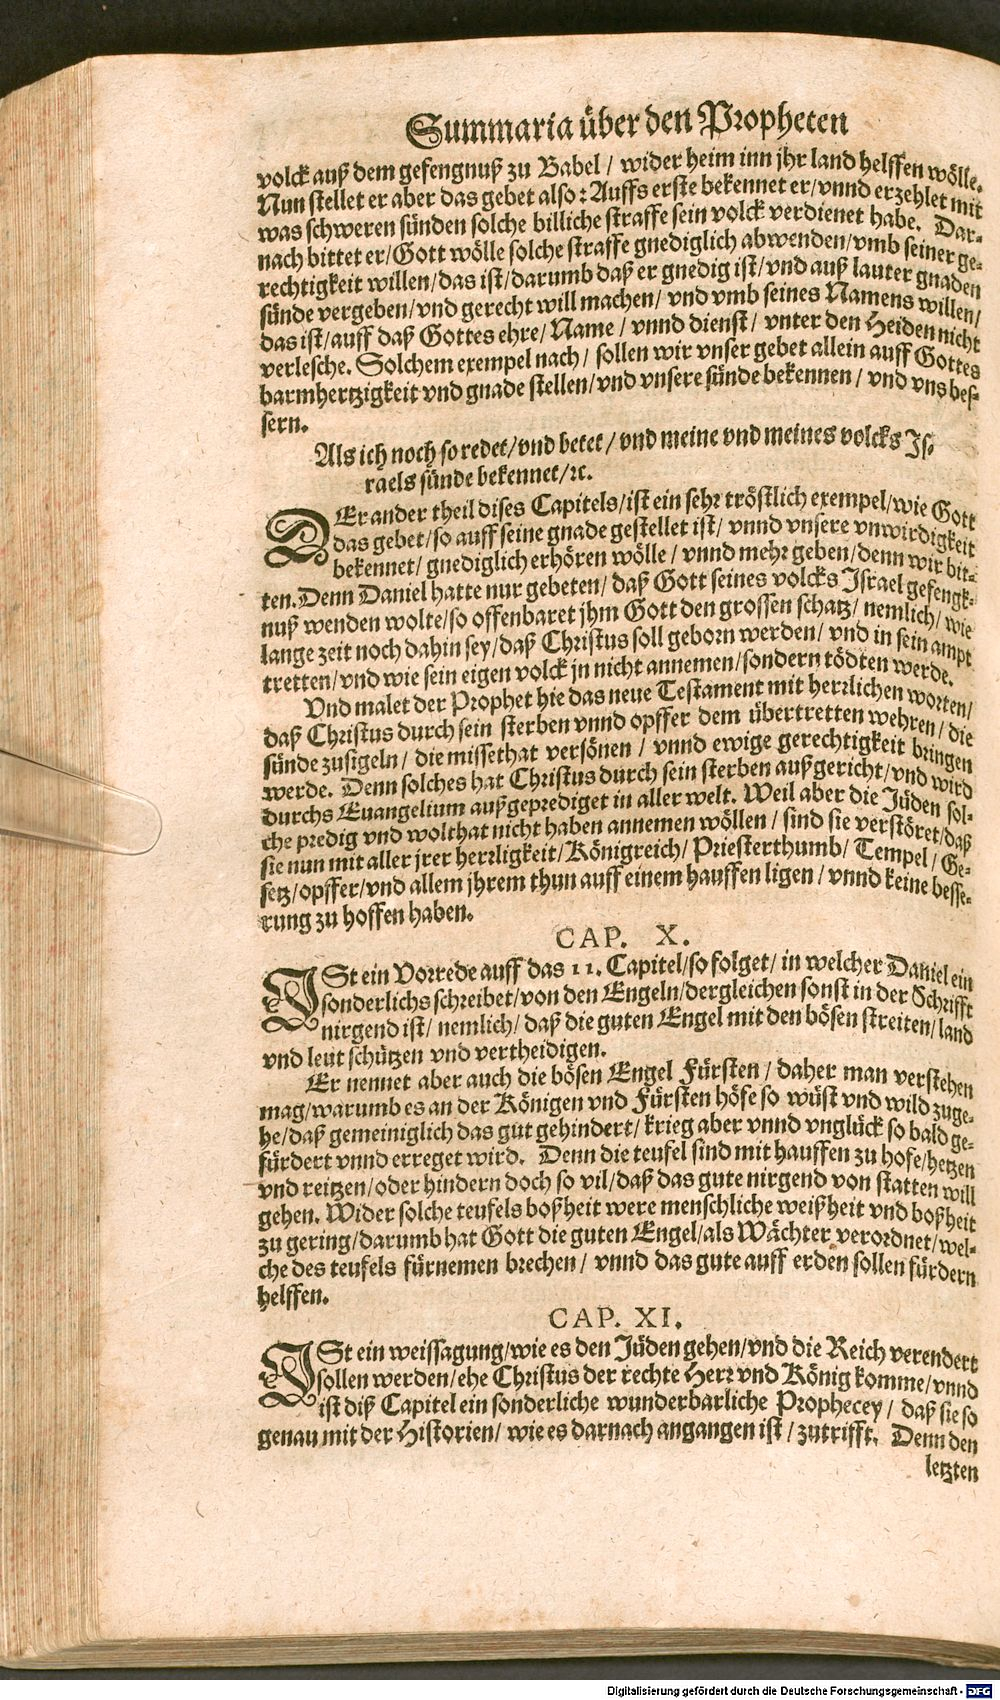 Summaria über den Propheten
volck auß dem gefengnuß zu Babel / wider heim inn jhr land helffen wölle.
Nun stellet er aber das gebet also: Auffs erste bekennet er/vnnd erzehlet mit
was schweren sünden solche billiche straffe sein volck verdienet habe. Dar-
nach bittet er/Gott wölle solche straffe gnediglich abwenden/vmb seiner ge-
rechtigkeit willen/das ist/darumb daß er gnedig ist/vnd auß lauter gnaden
sünde vergeben/vnd gerecht will machen/ vnd vmb seines Namens willen/
das ist/auff daß Gottes ehre/ Name / vnnd dienst/ vnter den Heiden nicht
verlesche. Solchem exempel nach/ sollen wir vnser gebet allein auff Gottes
barmhertzigkeit vnd gnade stellen/vnd vnsere sünde bekennen / vnd vns bes-
sern.
Als ich noch so redet/vnd betet / vnd meine vnd meines volcks Js-
raels sünde bekennet/ꝛc.
DEr ander theil dises Capitels/ist ein sehr tröstlich exempel/wie Gott
das gebet/so auff seine gnade gestellet ist/ vnnd vnsere vnwirdigkeit
bekennet/ gnediglich erhören wölle / vnnd mehr geben/denn wir bit-
ten. Denn Daniel hatte nur gebeten/ daß Gott seines volcks Jsrael gefengk-
nuß wenden wolte/so offenbaret jhm Gott den grossen schatz/ nemlich/ wie
lange zeit noch dahin sey/daß Christus soll geborn werden/ vnd in sein ampt
tretten/vnd wie sein eigen volck jn nicht annemen/sondern tödten werde.
Vnd malet der Prophet hie das neue Testament mit herrlichen worten/
daß Christus durch sein sterben vnnd opffer dem übertretten wehren/ die
sünde zusigeln/ die missethat versönen / vnnd ewige gerechtigkeit bringen
werde. Denn solches hat Christus durch sein sterben außgericht/vnd wird
durchs Euangelium außgeprediget in aller welt. Weil aber die Jüden sol-
che predig vnd wolthat nicht haben annemen wöllen / sind sie verstöret/daß
sie nun mit aller jrer herrligkeit/Königreich/ Priesterthumb/ Tempel/ Ge-
setz/opffer/vnd allem jhrem thun auff einem hauffen ligen / vnnd keine besse-
rung zu hoffen haben.
CAP. X.
JSt ein Vorrede auff das 11. Capitel/so folget/ in welcher Daniel ein
sonderlichs schreibet/von den Engeln/dergleichen sonst in der Schrifft
nirgend ist/ nemlich/ daß die guten Engel mit den bösen streiten/ land
vnd leut schützen vnd vertheidigen.
Er nennet aber auch die bösen Engel Fürsten / daher man verstehen
mag/warumb es an der Königen vnd Fürsten höfe so wüst vnd wild zuge-
he/daß gemeiniglich das gut gehindert/ krieg aber vnnd vnglück so bald ge-
fürdert vnnd erreget wird. Denn die teufel sind mit hauffen zu hofe/hetzen
vnd reitzen/oder hindern doch so vil/daß das gute nirgend von statten will
gehen. Wider solche teufels boßheit were menschliche weißheit vnd boßheit
zu gering/darumb hat Gott die guten Engel/als Wächter verordnet/wel-
che des teufels fürnemen brechen / vnnd das gute auff erden sollen fürdern
helffen.
CAP. XI.
JSt ein weissagung/wie es den Jüden gehen/vnd die Reich verendert
sollen werden/ehe Christus der rechte Herr vnd König komme/vnnd
ist diß Capitel ein sonderliche wunderbarliche Prophecey / daß sie so
genau mit der Historien/ wie es darnach angangen ist / zutrifft. Denn den
letzten
Digitalisierung gefördert durch die Deutsche Forschungsgemeinschaft - DFG